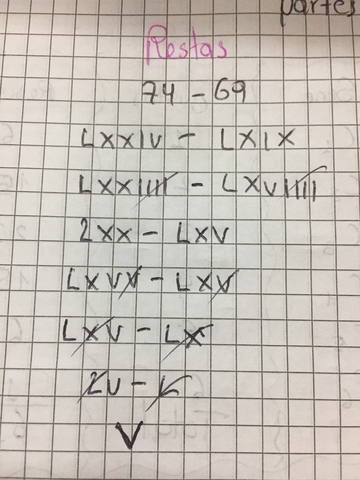 partes
Restas
74 - 69
LXXIV - LXIX
LXXIIII - LXVIIII
LXX - LXV
LXVV - LXV
LXV - LX
LV - L
V